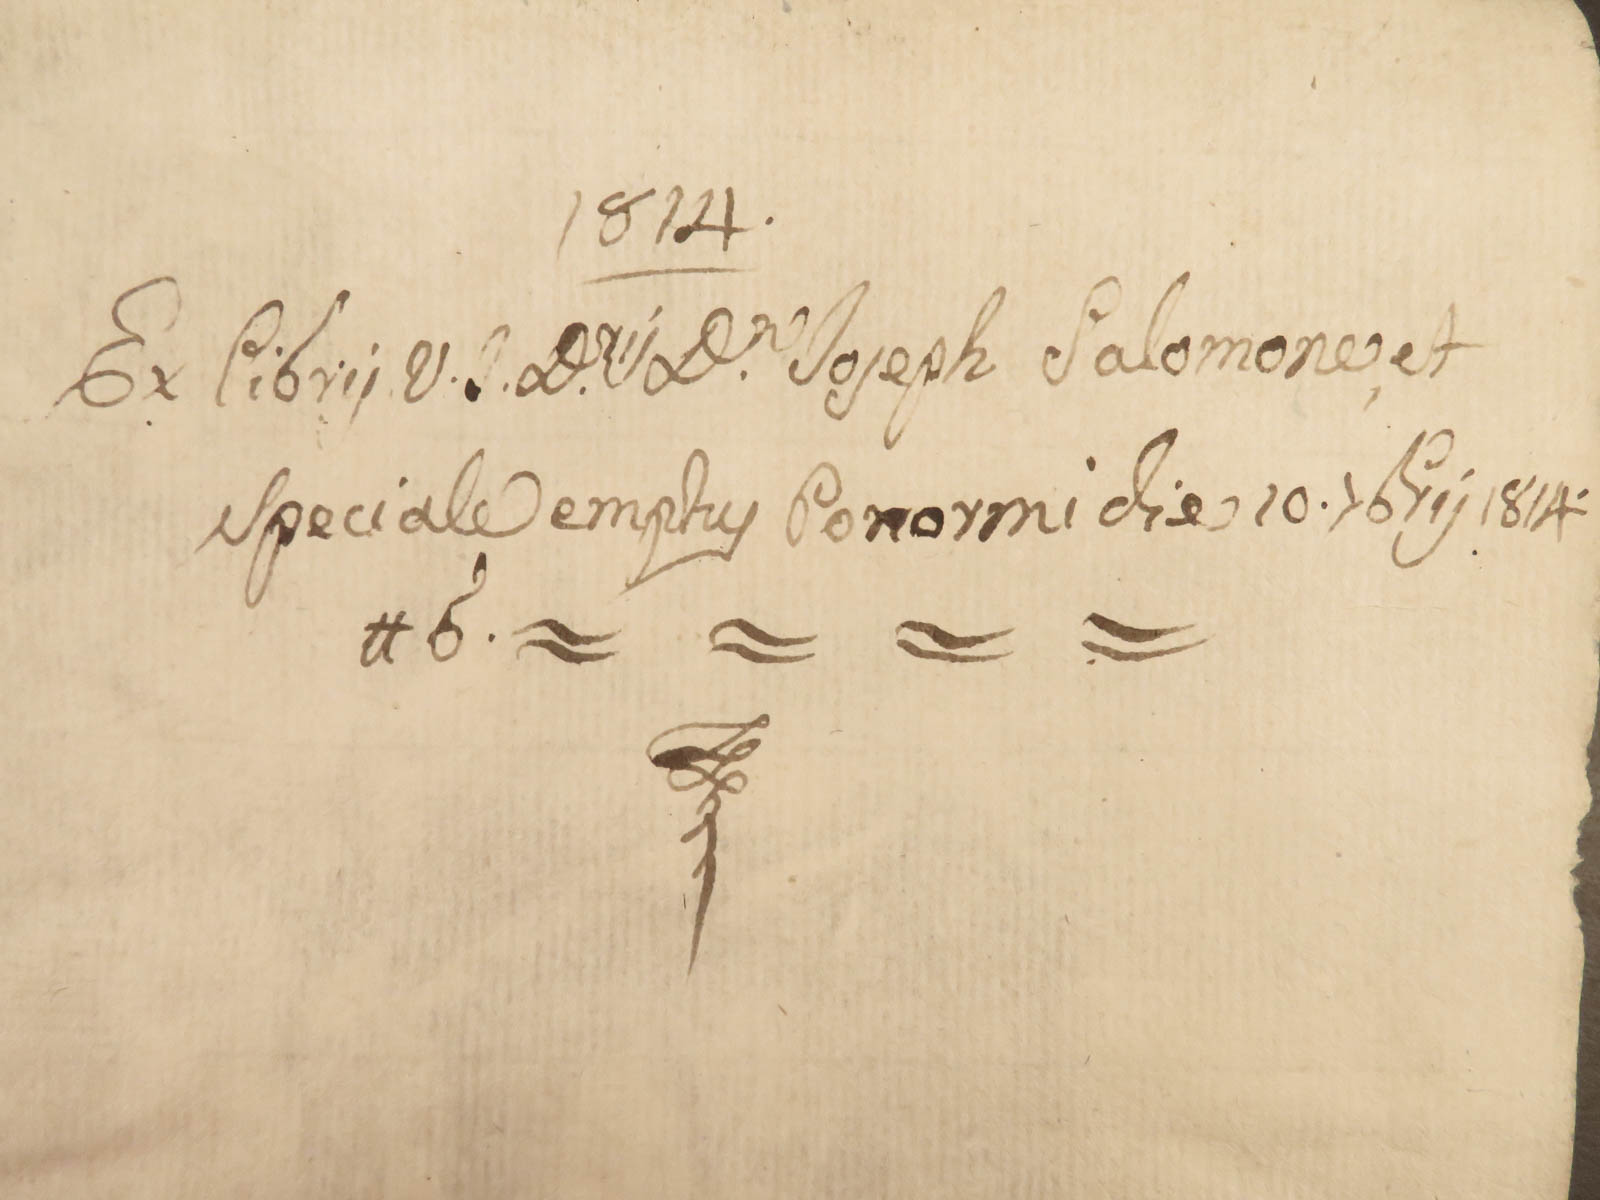 1814.
Ex Librij V. J. D.rij D.n Joseph Salomone, et
Speciale emptuj Ponormi die 10. 7brij 1814.
# 6. = = = =